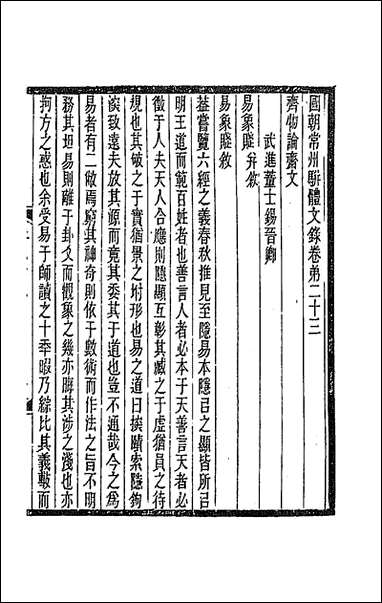 國朝常州駢體文錄卷弟二十三
齊物論齋文
武進董士錫晉卿
易象賦并敘
易象賦敘
葢嘗覽六經之義春秋推見至隱易本隱㠯之顯皆所㠯
明王道而範百姓者也善言人者必本于天善言天者必
徵于人夫天人合應則隱顯互彰其臧之于虛猶員之待
規也其破之于實猶景之坿形也易之道曰探賾索隱鉤
湥致遠夫放其源而竟其委其于道也豈不通哉今之為
易者有二敝焉窮其神奇則依于數術而作法之旨不明
務其坦易則離于卦爻而觀象之幾亦晦其涉之淺也亦
拘方之惑也余受易于師讀之十秊暇乃綜比其義覈而